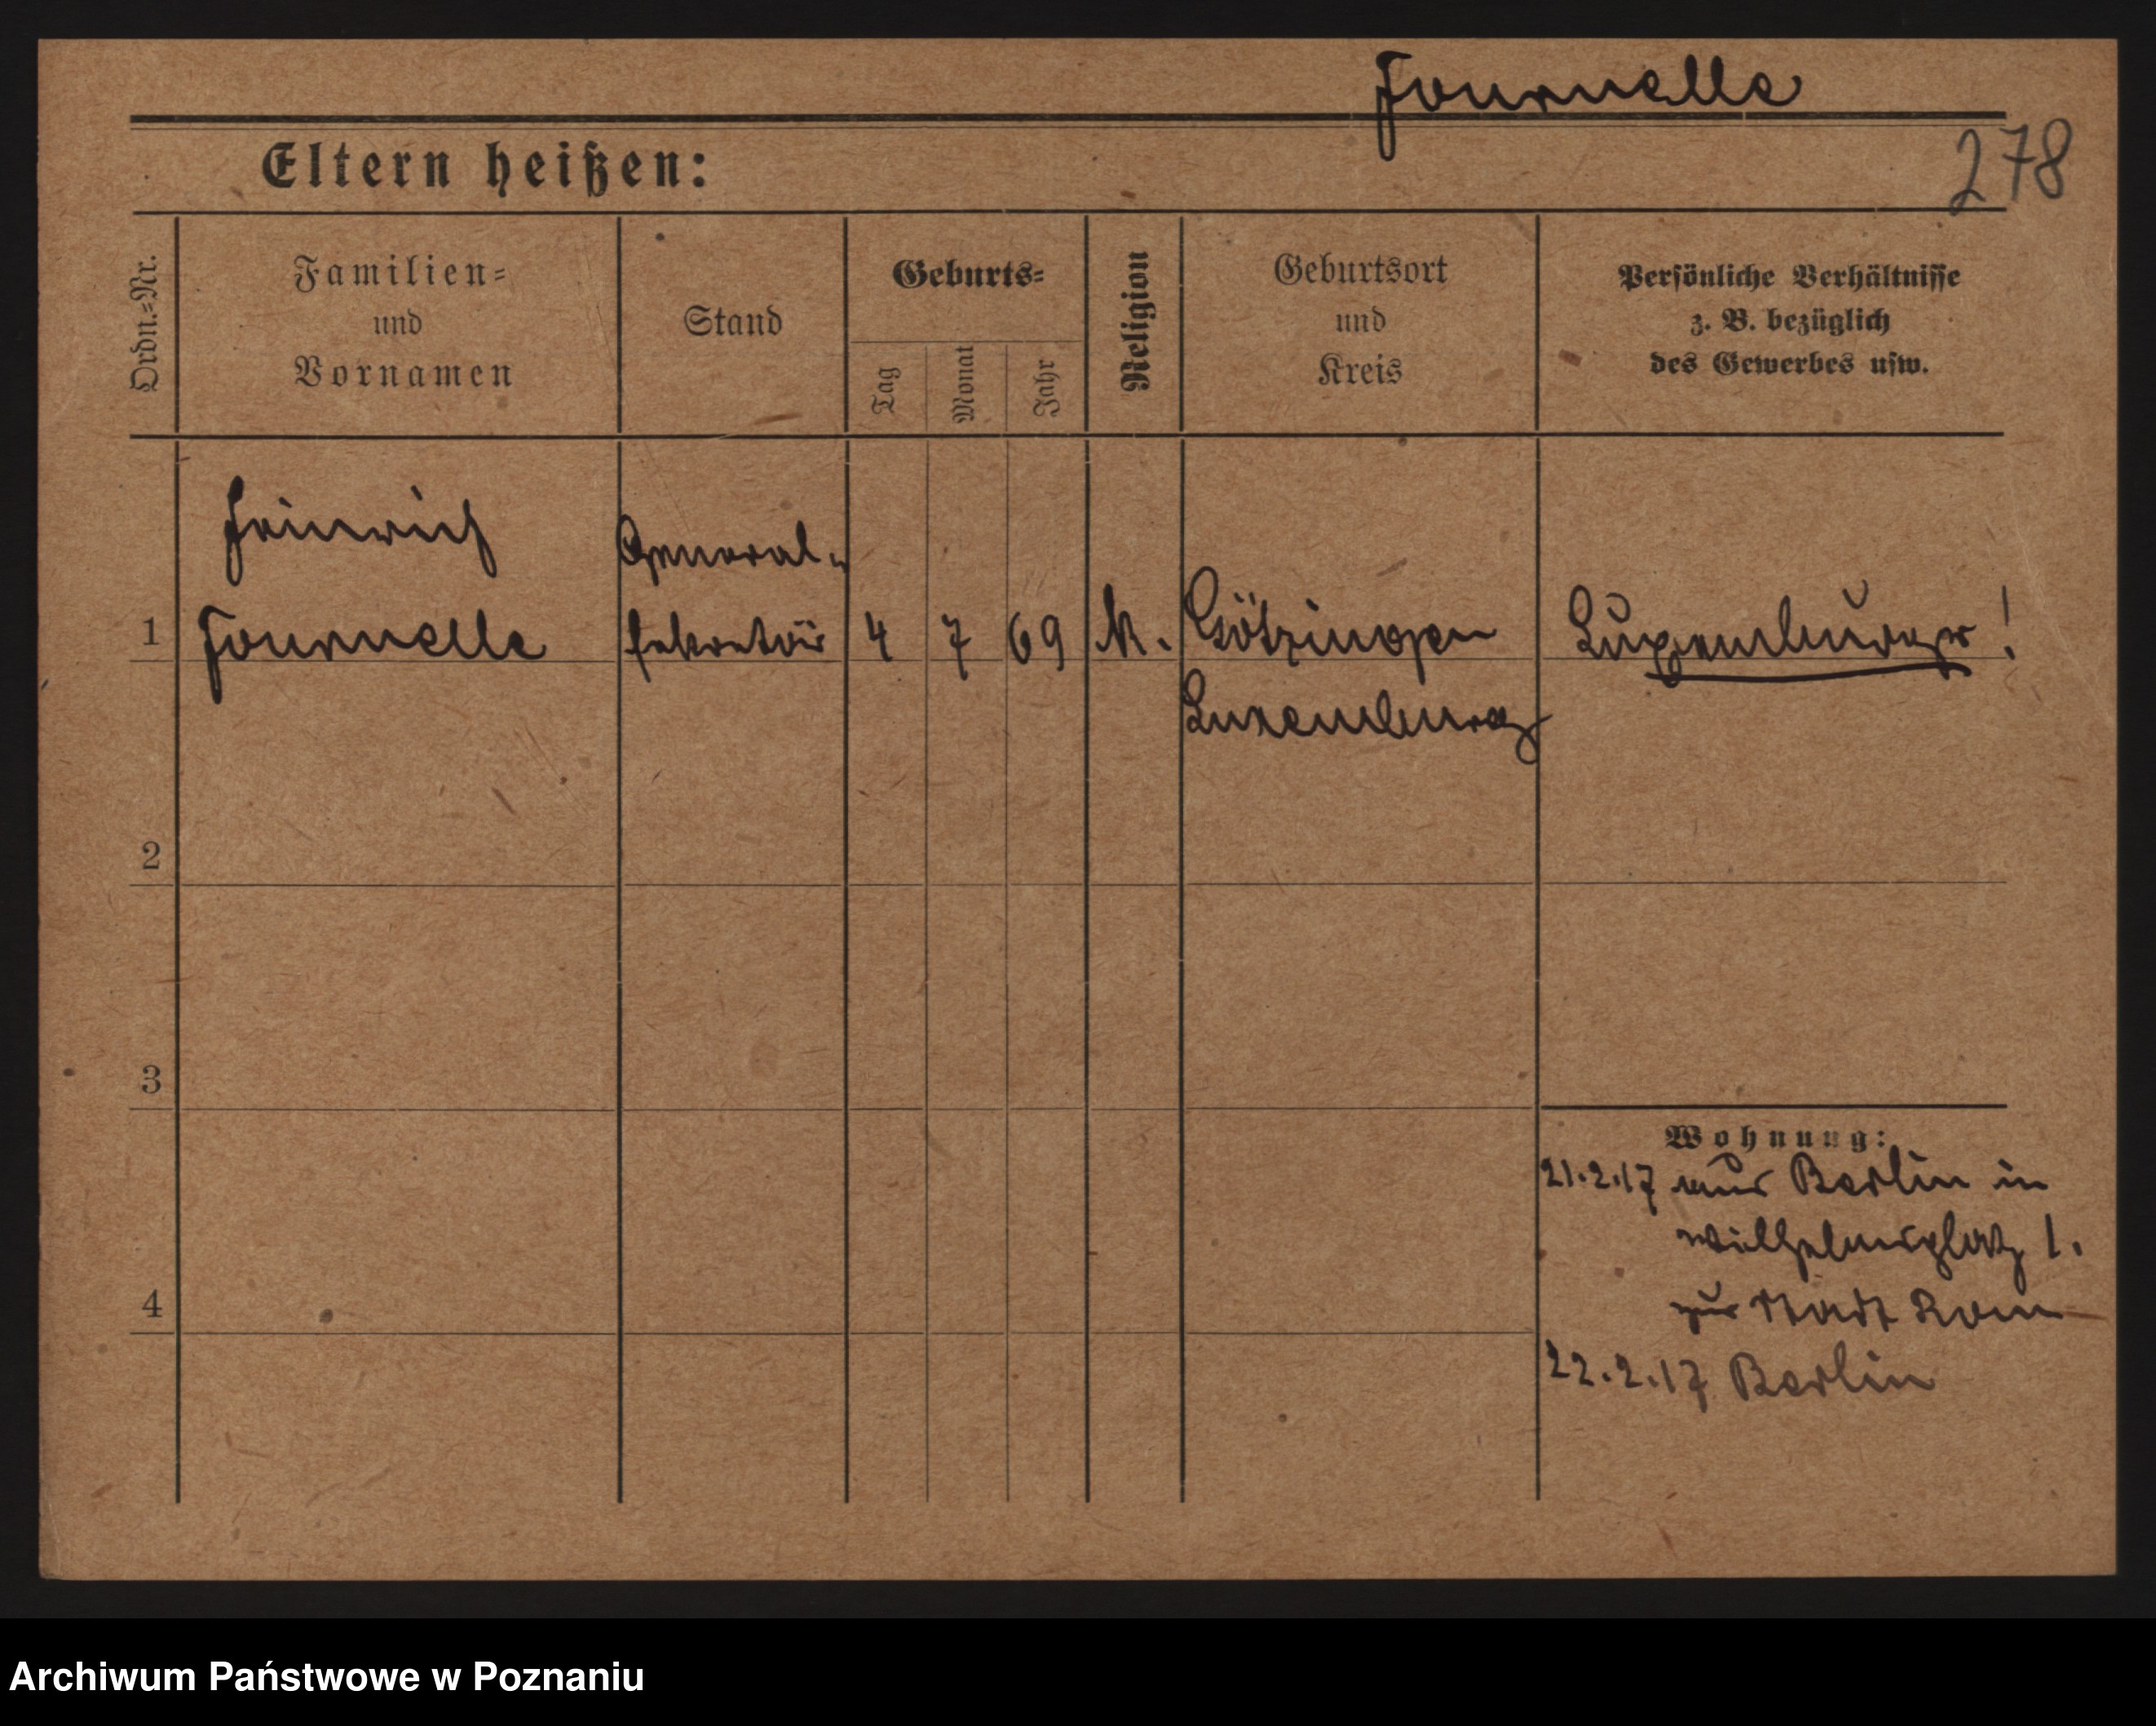 Fournelle
278
Eltern heißen:
Ordn.=Nr.
Familien=
und
Vornamen
Stand
Geburts=
Tag
Monat
Jahr
Religion
Geburtsort
und
Kreis
Persönliche Verhältnisse
z. B. bezüglich
des Gewerbes usw.
Heinrich
General-
1 Fournelle sekretär 4 7 69 K. Götzingen Luxemburger!
Luxemburg
2
3
Wohnung:
21.2.17 aus Berlin in
Wilhelmsplatz 1.
zur Stadt Rom
4
22.2.17 Berlin
Archiwum Państwowe w Poznaniu